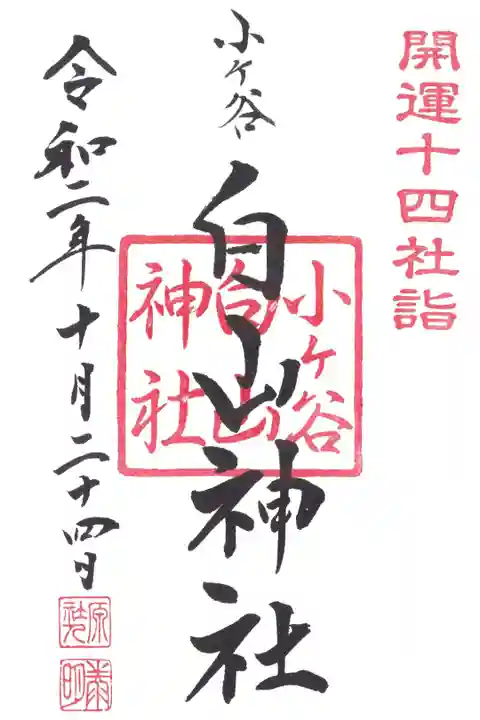 開運十四社詣
小ヶ谷
白山神社
小ヶ谷
白山
神社
令和二年十月二十四日